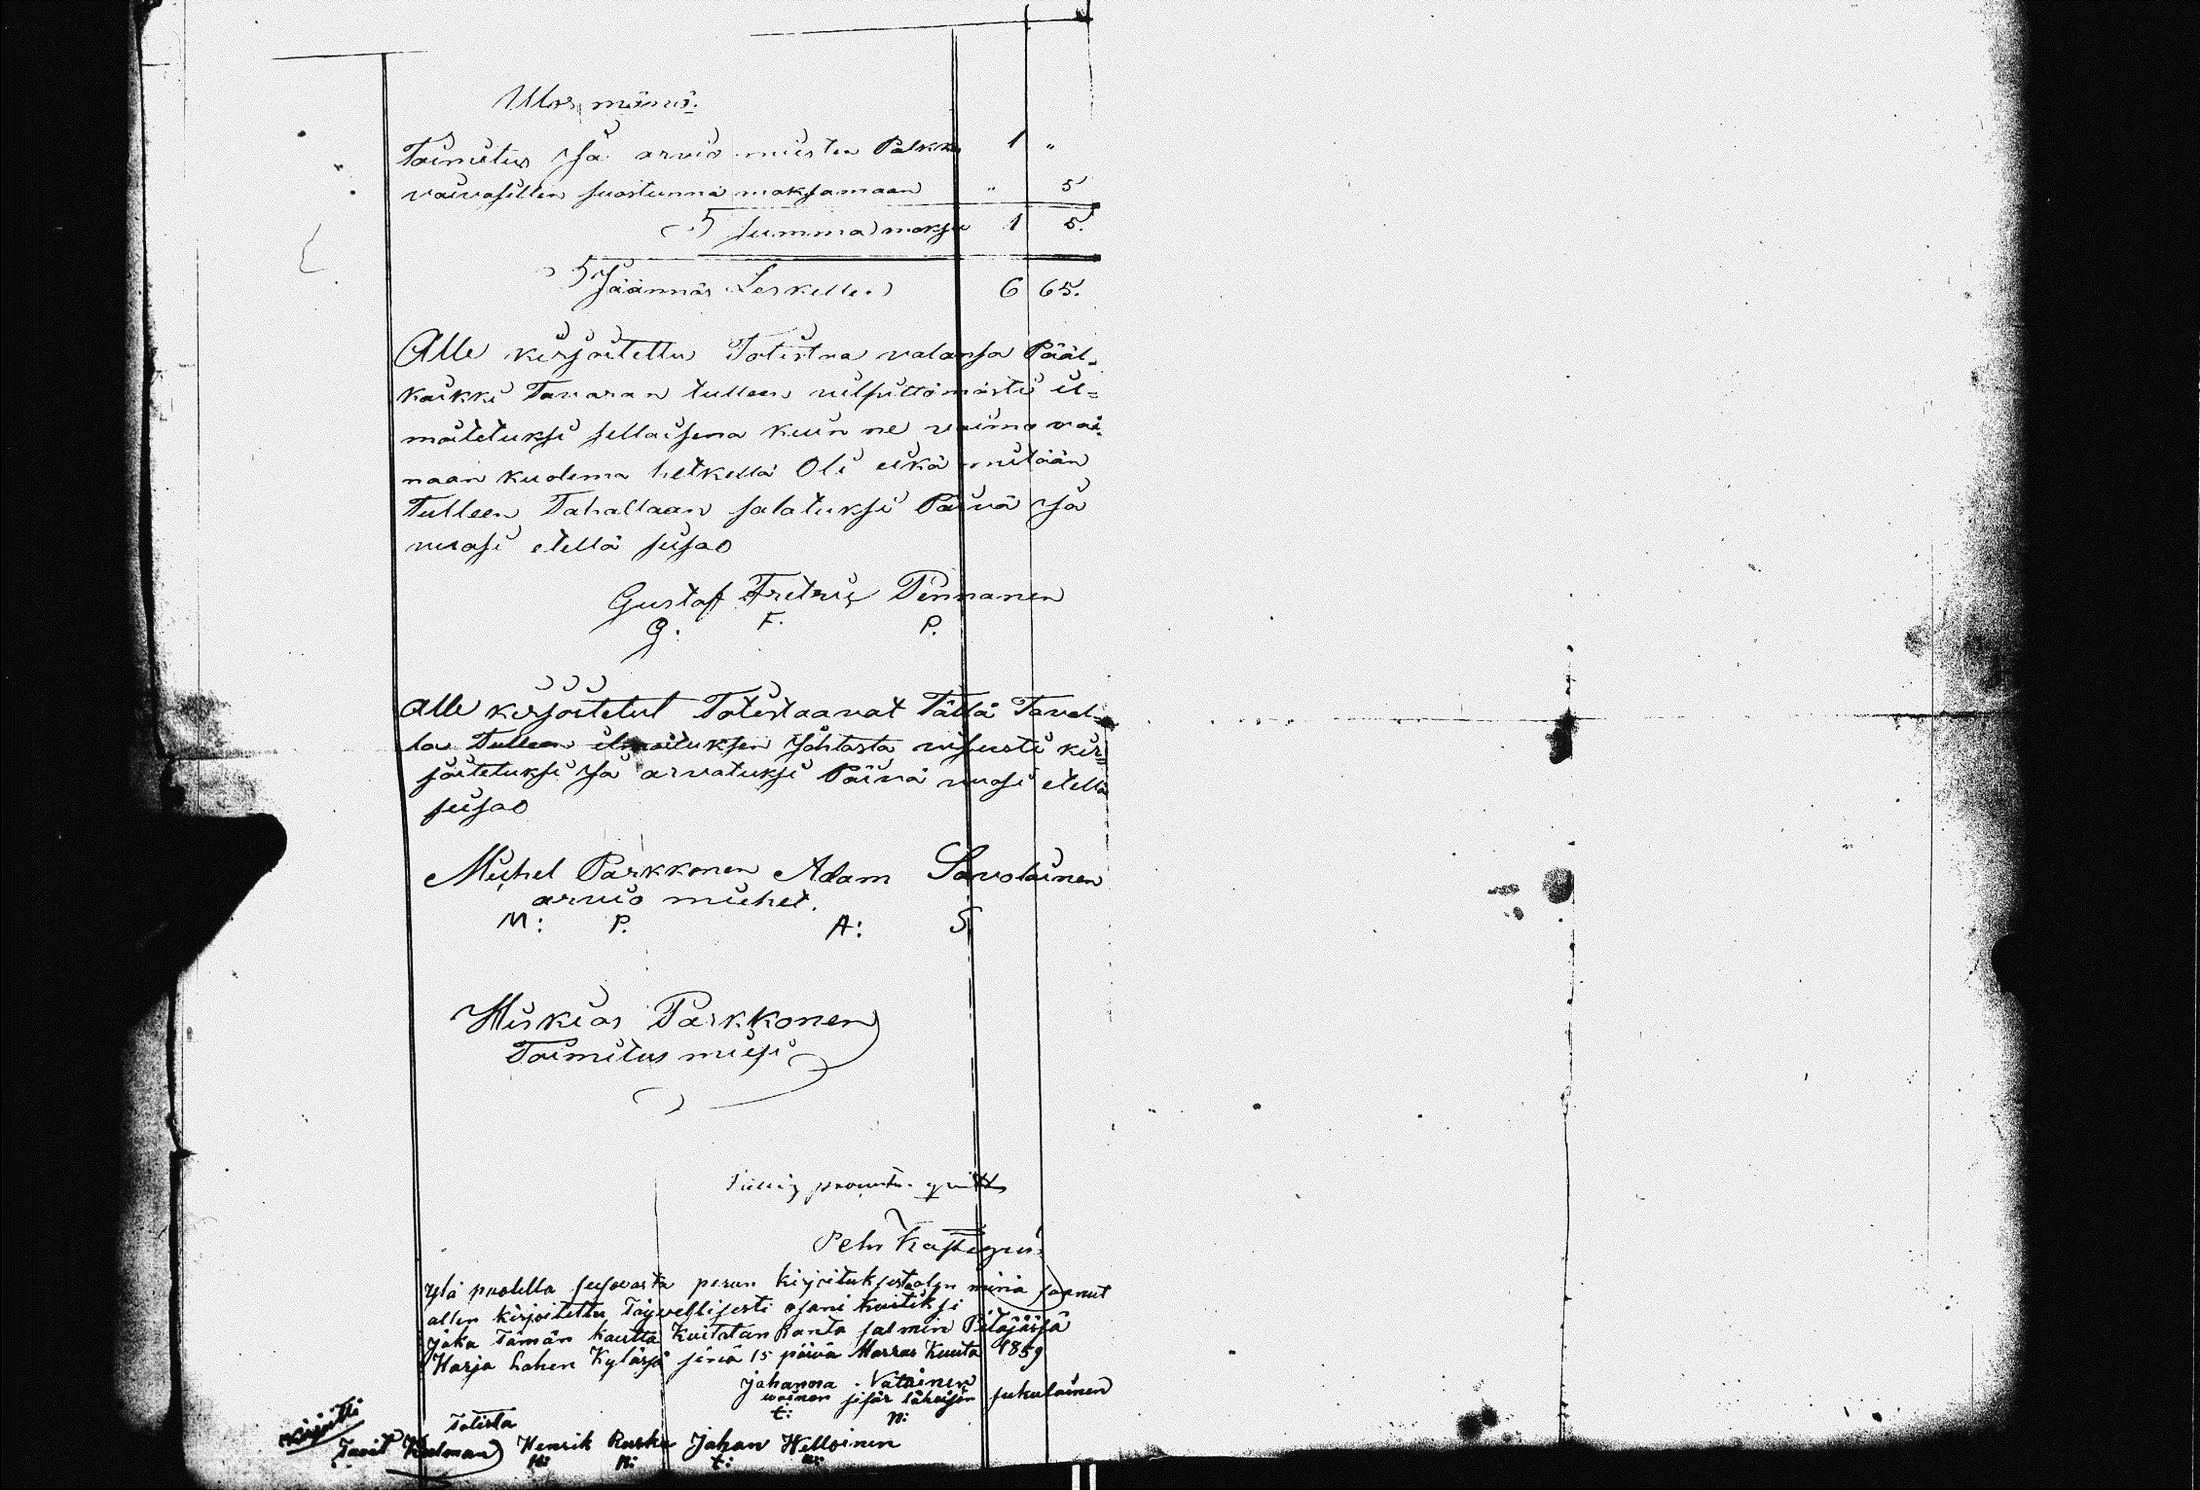 Ulos mänöö.
Toimitus ja arvio miesten Palkka 1 "
vaivasillen suostunna maksamaan " 5
summa maksu 1 5.
Jäännös Leskellen 6 65.
Alle kirjoitettu Totistaa valansa Pääl-
kaikki Tavaran tulleen vilpittömästi il=
moitetuksi sellaisena kuin ne vaimo vai-
naan kuolema hetkellä Oli eikä mitään
Tulleen Tahallaan salatuksi Päivä ja
vuosi etellä seisao
Gustaf Fretrig Pennanen
G. F. P.
Alle kirjoitetut Totistaavat Tällä Taval-
la Tulleen ilmoituksen johtasta visusti kir=
joitetuksi ja arvatuksi Päivä vuosi etellä
seisao
Mickel Parkkonen Adam Savolainen
arvio miehet.
M: P. A: S
Hiskias Parkkonen
Toimitus miesi
quitt
Petr
Ylä puolella seisovasta perun kirjoituksesta olen minä saanut
allen kirjoitettu Täyvellisesti osani kuitiksi
Joka Tämän kautta kuitatan Ranta salmin Pitäjässä
Harja Lahen Kylässä sinä 15 päivä Marras Kuuta 1859
Johanna Vatainen
wainan sisär läheisin sukulainen
t: n:
Totista
Kirjoitti
Henrik Ruske Johan Helloinen